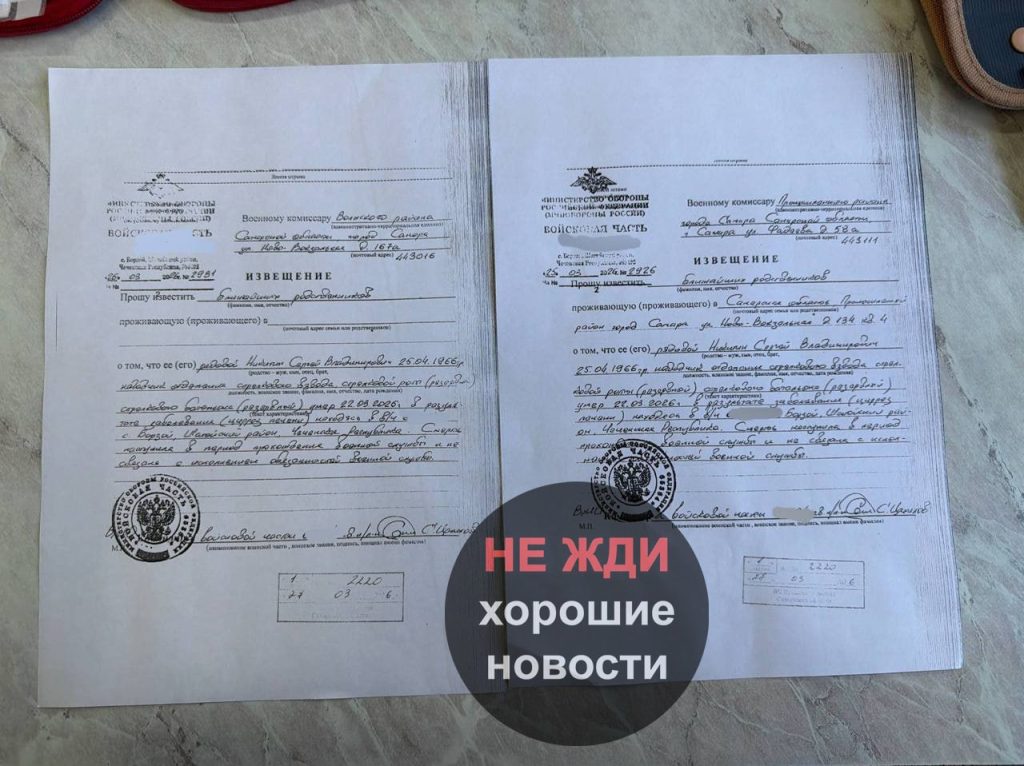 МИНИСТЕРСТВО ОБОРОНЫ
РОССИЙСКОЙ ФЕДЕРАЦИИ
(МИНОБОРОНЫ РОССИИ)
ВОЙСКОВАЯ ЧАСТЬ
с. Борзой, Шатойский район,
Чеченская Республика,
26 03 2026г. № 2931
Военному комиссару Воинского района
(административно-территориальная единица)
Самарской области город Самара
ул. Ново-Вокзальная д. 167а
(почтовый адрес) 443016
ИЗВЕЩЕНИЕ
Прошу известить Ближайших родственников
(фамилия, имя, отчество)
проживающую (проживающего) в
(почтовый адрес семьи или родственника)
о том, что ее (его) рядовой Никитин Сергей Владимирович 25.04.1966г
(родство – муж, сын, отец, брат,
наводчик отделения стрелкового взвода стрелковой роты (резервной)
должность, воинское звание, фамилия, имя, отчество, дата рождения)
стрелкового батальона (резервной) умер 22.03.2026г. в резуль
тате заболевания (цирроз печени) находясь в в/ч
с. Борзой, Шатойский район, Чеченская Республика. Смерть
наступила в период прохождения военной службы и не
связана с исполнением обязанностей военной службы.
войсковой части
М.П.
(наименование воинской части, воинское звание, подпись, инициал имени фамилия)
1 2220
27 03 6
МИНИСТЕРСТВО ОБОРОНЫ
РОССИЙСКОЙ ФЕДЕРАЦИИ
(МИНОБОРОНЫ РОССИИ)
ВОЙСКОВАЯ ЧАСТЬ
с. Борзой, Шатойский район,
Чеченская Республика,
25 03 2026г. № 2926
Военному комиссару Промышленного района
города Самара Самарской области
г. Самара ул. Фадеева д 58а
(почтовый адрес) 443111
ИЗВЕЩЕНИЕ
Прошу известить Ближайших родственников
(фамилия, имя, отчество)
проживающую (проживающего) в Самарская область Промышленный
(почтовый адрес семьи или родственника)
район город Самара ул. Ново-Вокзальная д 134 кв 4
о том, что ее (его) рядовой Никитин Сергей Владимирович
(родство – муж, сын, отец, брат,
наводчик отделения стрелкового взвода стрел-
должность, воинское звание, фамилия, имя, отчество, дата рождения)
ковой роты (резервной) стрелкового батальона (резервной)
умер 22.03.2026г. в результате заболевания (цирроз
печени) находясь в в/ч Борзой, Шатойский рай-
он Чеченская Республика. Смерть наступила в период
военной службы и не связана с испол-
военной службы.
войсковой части
М.П.
(наименование воинской части, воинское звание, подпись, инициал имени фамилия)
1 2220
27 03 6
НЕ ЖДИ
хорошие
новости